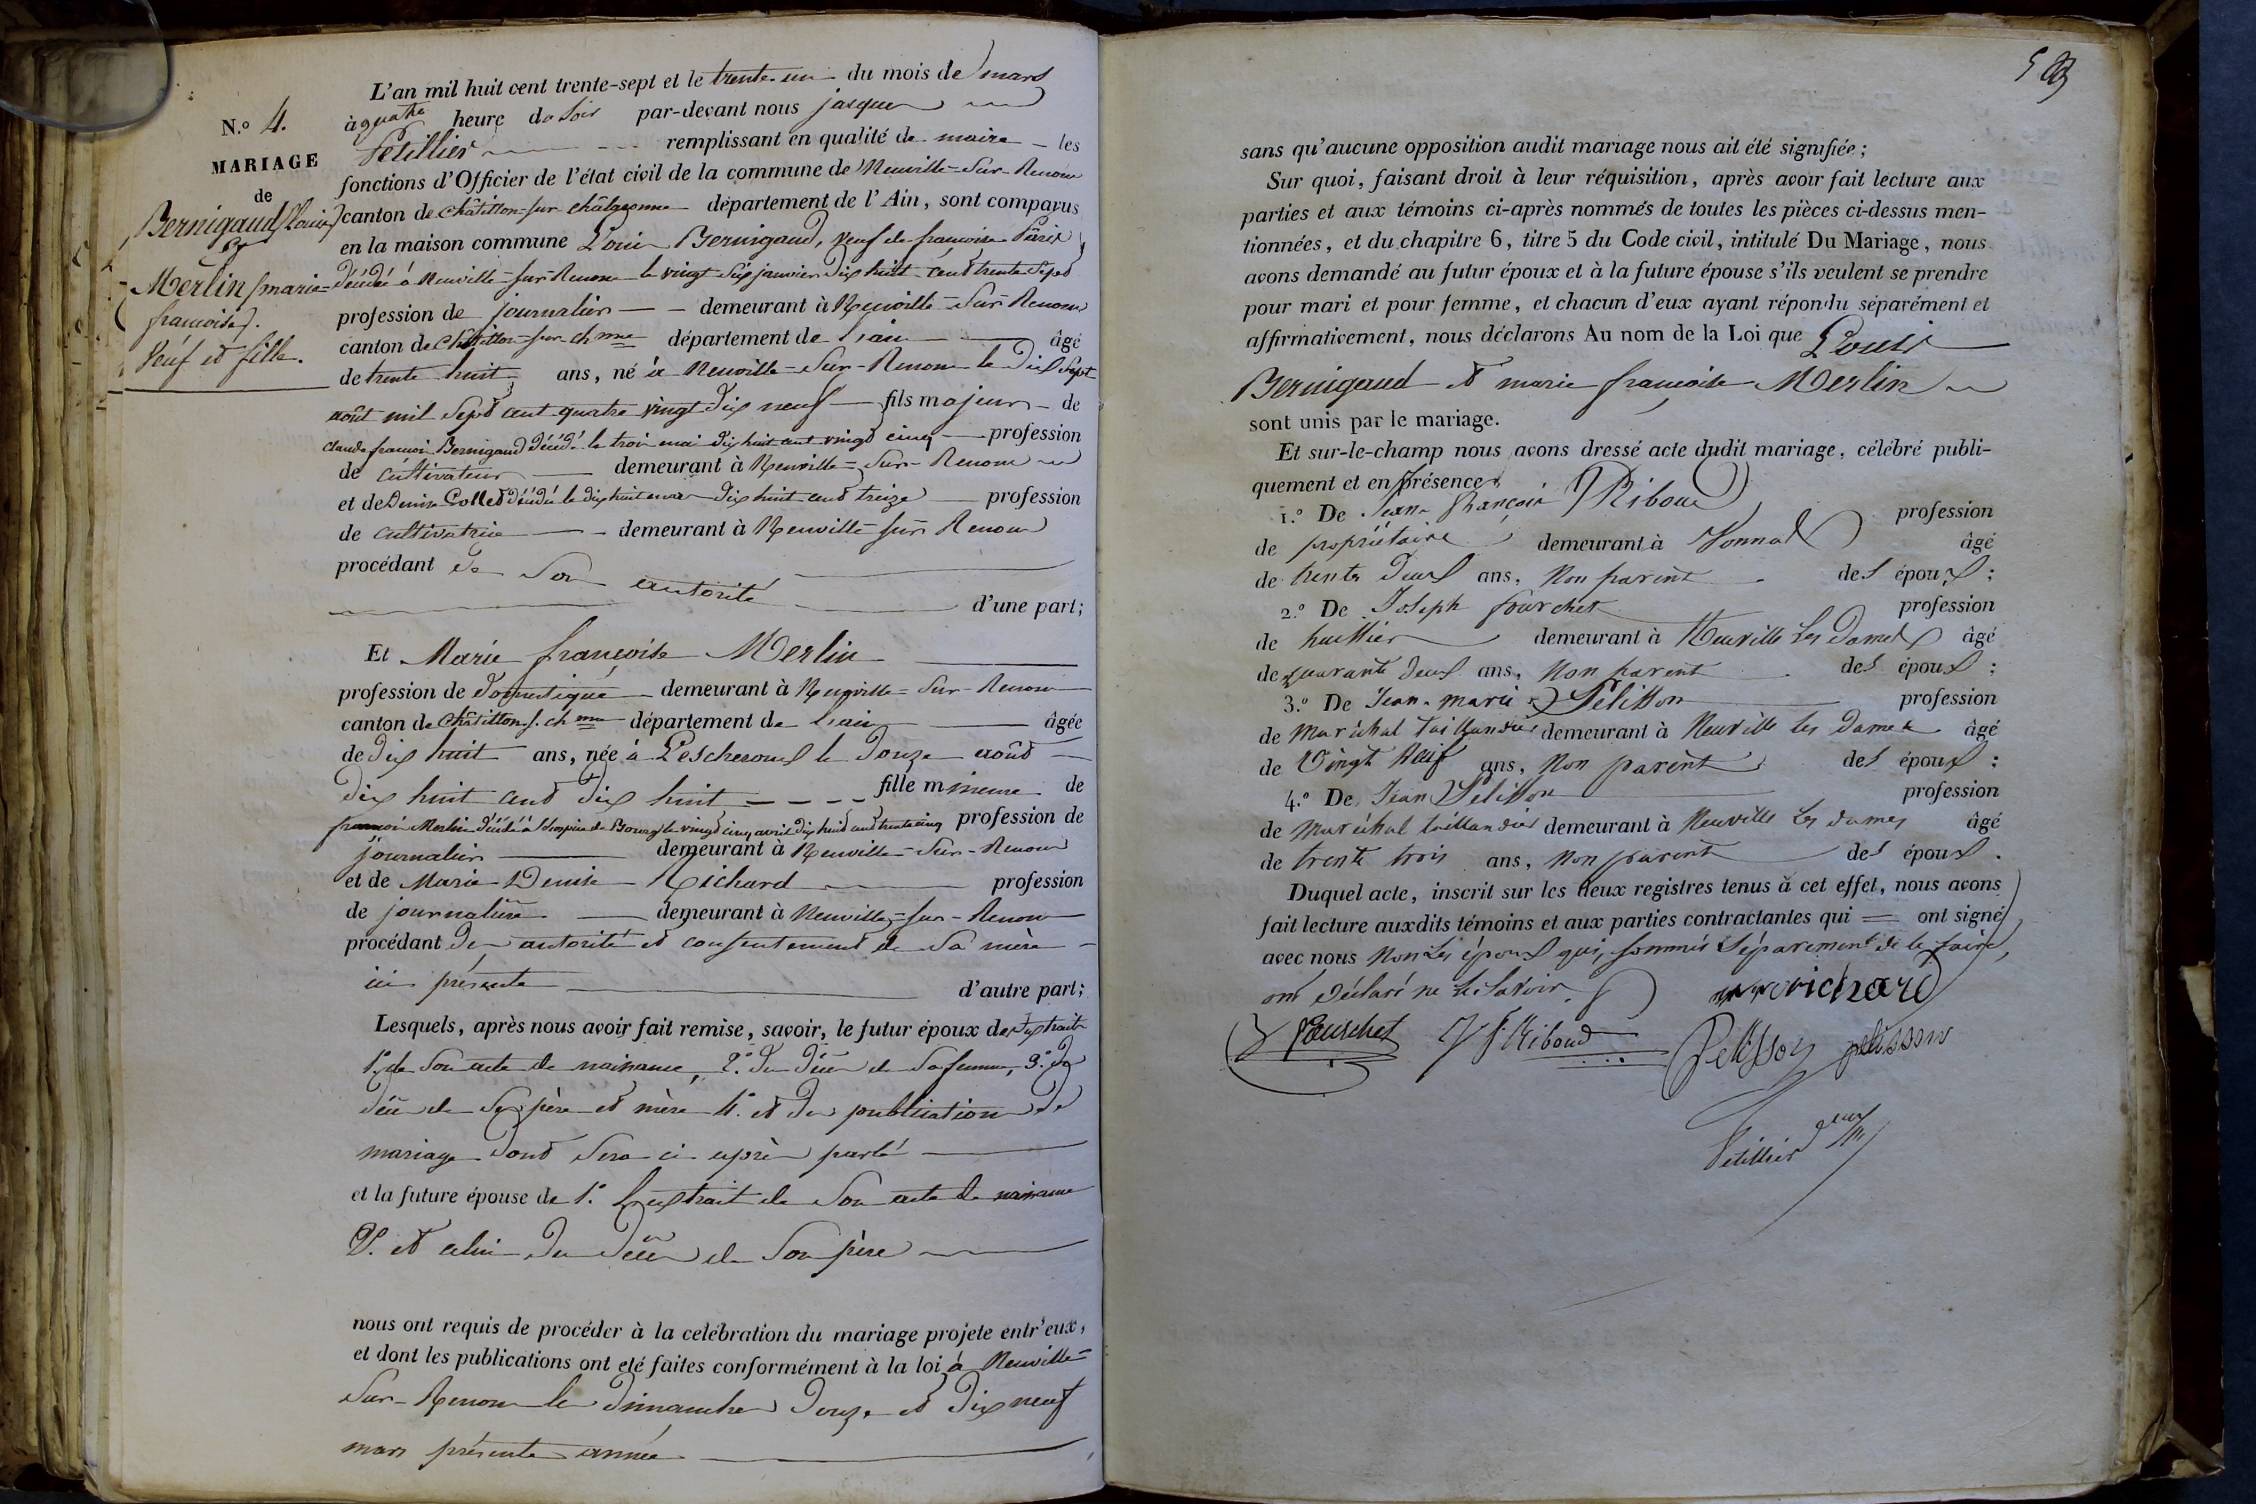 N.o 4.
MARIAGE
de
Bernigaud (Louis)
&
Merlin (marie=
françoise).
Veuf et fille.
L'an mil huit cent trente-sept et le trente-un du mois de mars
à quatre heure du soir par-devant nous jasques
Petillier remplissant en qualité de maire les
fonctions d'Officier de l'état civil de la commune de Neuville-Sur-Renom
canton de Châtillon-sur-châlaronne département de l'Ain, sont comparus
en la maison commune Louis Bernigaud, veuf de françoise
décédée à Neuville-sur-Renom le vingt six janvier dix huit cent trente sept
profession de journalier demeurant à Neuville-Sur-Renom
canton de Châtillon-sur-chnne département de l'ain âgé
de trente huit ans, né à Neuville-Sur-Renom le dix sept
août mil sept cent quatre vingt dix neuf fils majeur de
claude françois Bernigaud décédé le trois mai dix huit cent vingt cinq profession
de cultivateur demeurant à Neuville-Sur-Renom
et de Denise Collet décédée le dix huit dix huit cent treize profession
de cultivatrice demeurant à Neuville-sur Renom
procédant de son autorité
d'une part;
Et Marie françoise Merlin
profession de domestique demeurant à Neuville-Sur-Renom
canton de Châtillon s. chnne département de l'ain âgée
de dix huit ans, née à L'escheroux le douze août
dix huit cent dix huit fille mineure de
françois Merlin décédé à l'hospice de Bourg le vingt cinq avril dix huit cent trente cinq profession de
journalier demeurant à Neuville-Sur-Renom
et de Marie Denise Richard profession
de journalière demeurant à Neuville-sur-Renom
procédant de autorité et consentement de sa mère
ici présente d'autre part;
Lesquels, après nous avoir fait remise, savoir, le futur époux de extrait
1.o de son acte de naissance, 2.o du décès de sa femme, 3.o du
décès de ses père et mère 4.o et du publication de
mariage dont sera ci après parlé
et la future épouse de 1.o L'extrait de son acte de naissance
2.o et celui du décès de son père
nous ont requis de procéder à la celébration du mariage projete entr'eux,
et dont les publications ont eté faites conformément à la loi à Neuville-
Sur-Renom le dimanches douze et dix neuf
mars présente année
sans qu'aucune opposition audit mariage nous ait été signifiée;
Sur quoi, faisant droit à leur réquisition, après avoir fait lecture aux
parties et aux témoins ci-après nommés de toutes les pièces ci-dessus men-
tionnées, et du chapitre 6, titre 5 du Code civil, intitulé Du Mariage, nous
avons demandé au futur époux et à la future épouse s'ils veulent se prendre
pour mari et pour femme, et chacun d'eux ayant répondu séparément et
affirmativement, nous déclarons Au nom de la Loi que Louis
Bernigaud et marie françoise Merlin
sont unis par le mariage.
Et sur-le-champ nous avons dressé acte dudit mariage, célébré publi-
quement et en présence
1.o De Jean François Riboud profession
de propriétaire demeurant à Vonnas âgé
de trente deux ans, Non parent des époux;
2.o De Joseph fourchet profession
de huissier demeurant à Neuville Les Dames âgé
de quarante deux ans, Non parent des époux;
3.o De Jean-marie Pelisson profession
de Maréchal taillandier demeurant à Neuville les Dames âgé
de Vingt Neuf ans, Non parent des époux;
4.o De Jean Pelisson profession
de Maréchal taillandier demeurant à Neuville Les dames âgé
de trente trois ans, Non parent des époux.
Duquel acte, inscrit sur les deux registres tenus à cet effet, nous avons
fait lecture auxdits témoins et aux parties contractantes qui ont signé
avec nous Non Les époux qui, sommés séparement de le faire,
ont déclaré ne le savoir.
richard
fourchet J f. Riboud Pelisson pelisson
Petillier